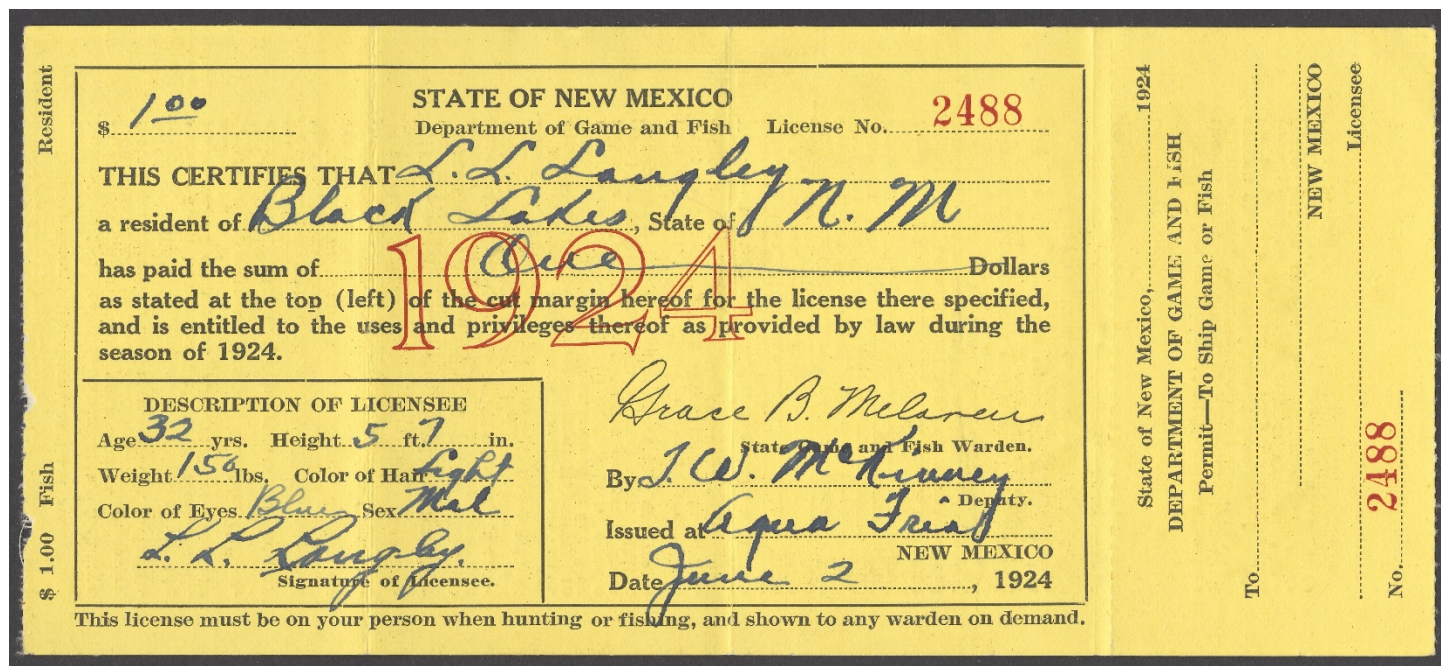 Resident
$ 1.00 Fish
$ 1 00
STATE OF NEW MEXICO
Department of Game and Fish License No. 2488
THIS CERTIFIES THAT L. L. Langley
a resident of Black Lakes, State of N. M
has paid the sum of One Dollars
as stated at the top (left) of the cut margin hereof for the license there specified,
and is entitled to the uses and privileges thereof as provided by law during the
season of 1924.
1924
DESCRIPTION OF LICENSEE
Age 32 yrs. Height 5 ft. 7 in.
Weight 150 lbs. Color of Hair Light
Color of Eyes Blue Sex Mal
L. L. Langley.
Signature of Licensee.
Grace B. Melaven
State Game and Fish Warden.
By T. W. McKinney
Deputy.
Issued at Aqua Fria
NEW MEXICO
Date June 2, 1924
This license must be on your person when hunting or fishing, and shown to any warden on demand.
State of New Mexico, 1924
DEPARTMENT OF GAME AND FISH
Permit—To Ship Game or Fish
To
NEW MEXICO
Licensee
No. 2488